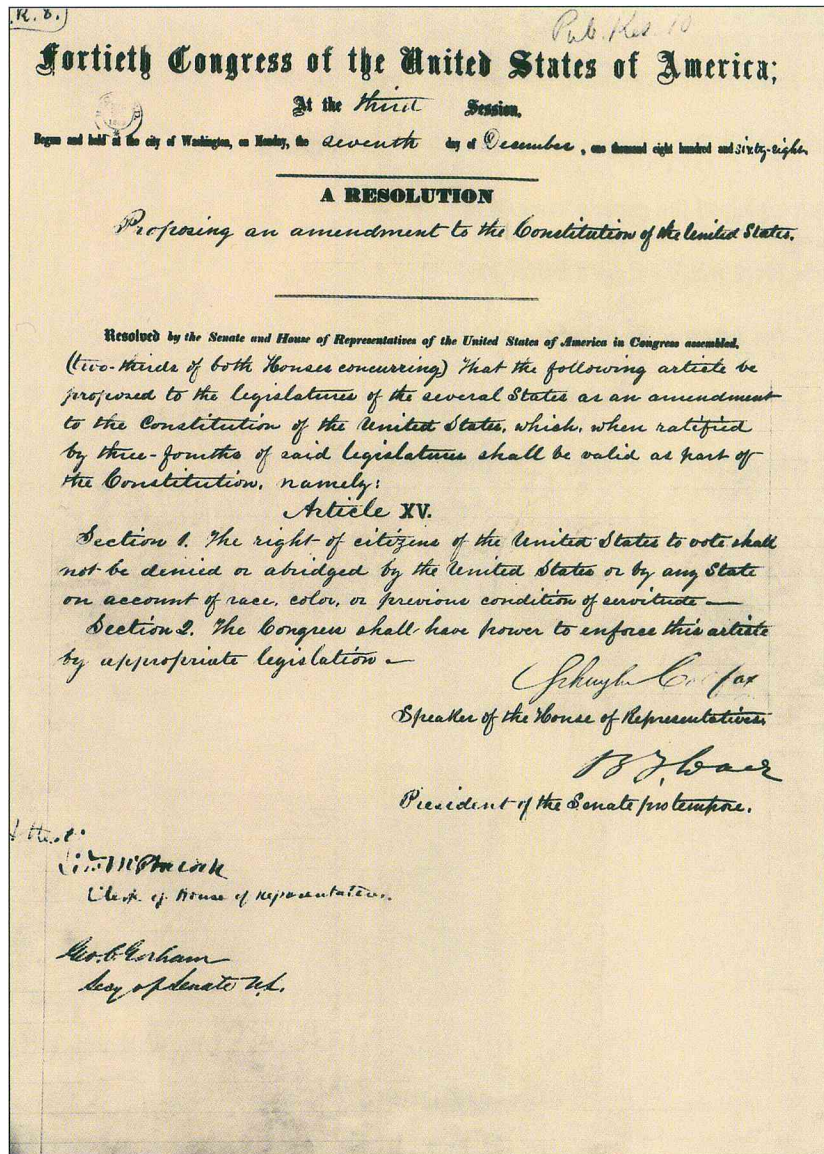 Pub. Res. 10
Fortieth Congress of the United States of America;
At the third Session,
Begun and held at the city of Washington, on Monday, the seventh day of December, one thousand eight hundred and sixty-eight
A RESOLUTION
Proposing an amendment to the Constitution of the United States.
Resolved by the Senate and House of Representatives of the United States of America in Congress assembled,
(two-thirds of both Houses concurring) That the following article be
proposed to the legislatures of the several States as an amendment
to the Constitution of the United States, which, when ratified
by three-fourths of said legislatures shall be valid as part of
the Constitution, namely:
Article XV.
Section 1. The right of citizens of the United States to vote shall
not be denied or abridged by the United States or by any State
on account of race, color, or previous condition of servitude—
Section 2. The Congress shall have power to enforce this article
by appropriate legislation—
Schuyler Colfax
Speaker of the House of Representatives.
B F Wade
President of the Senate pro tempore.
Attest:
Clerk of House of Representatives.
Geo. C. Gorham
Secy of Senate U.S.